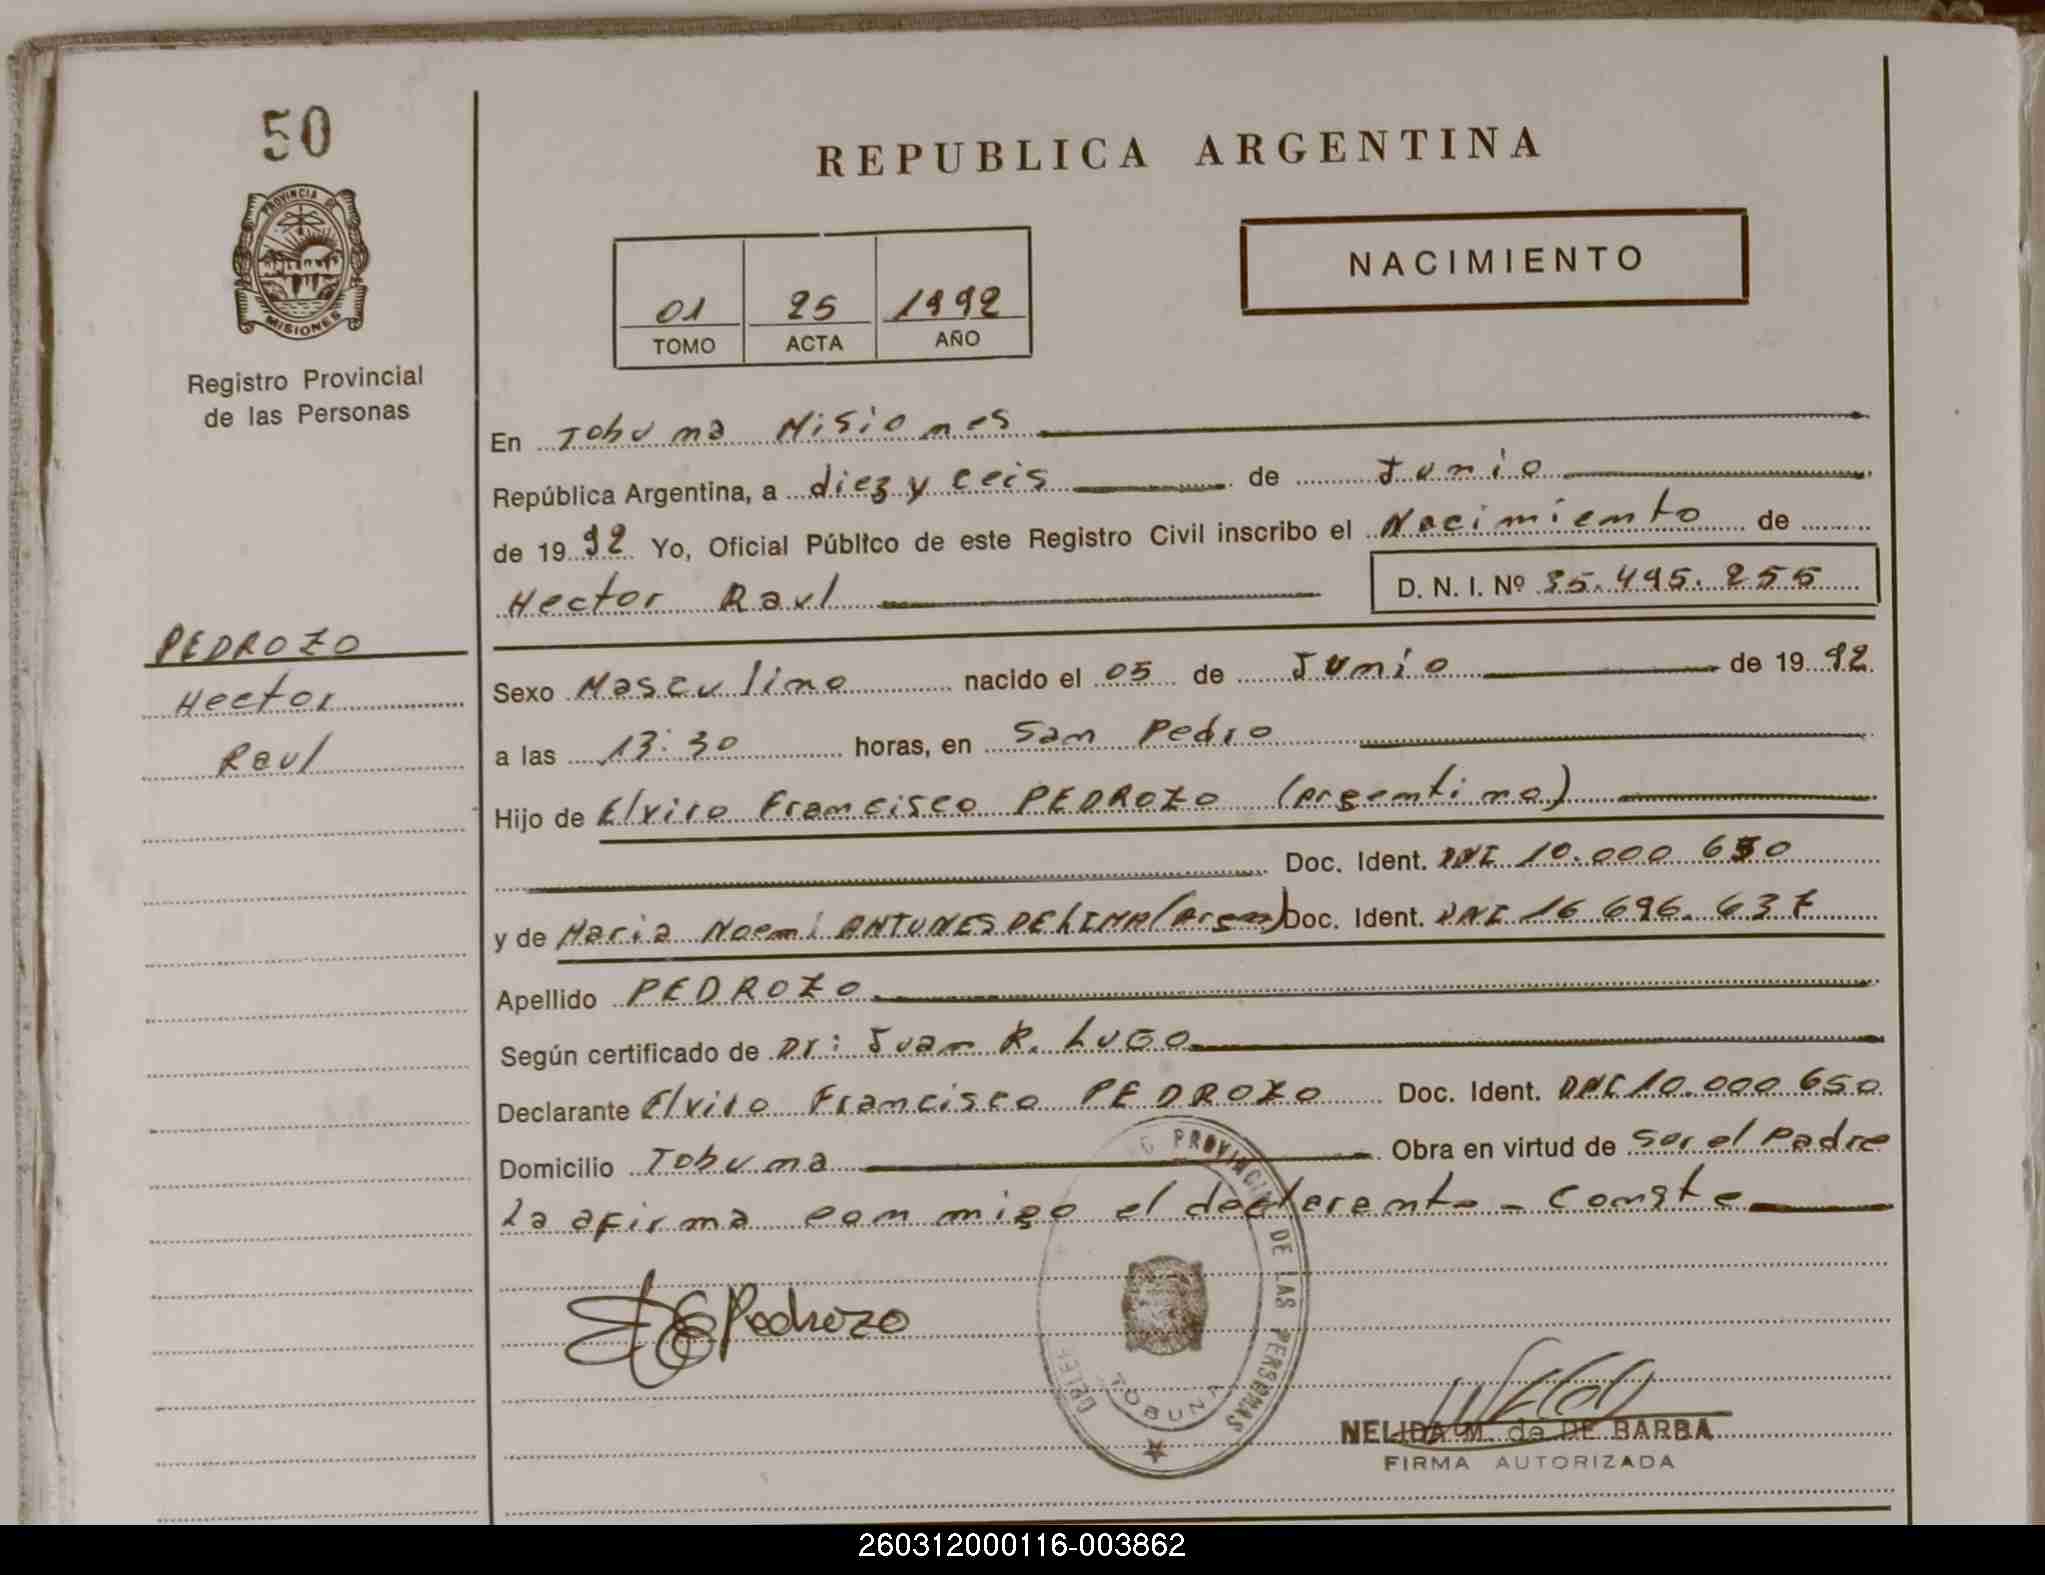 50
PROVINCIA DE
MISIONES
Registro Provincial
de las Personas
REPUBLICA ARGENTINA
NACIMIENTO
01 25 1992
TOMO ACTA AÑO
En Tobuna Misiones
República Argentina, a diez y ceis de Junio
de 1992 Yo, Oficial Público de este Registro Civil inscribo el Nacimiento de
Hector Raul D. N. I. Nº 35.495.255
PEDROZO
Hector
Raul
Sexo Masculino nacido el 05 de Junio de 1992
a las 13:30 horas, en San Pedro
Hijo de Elviro Francisco PEDROZO (argentino)
Doc. Ident. DNI 10.000 650
y de Maria Noemi ANTUNES DE LIMA (Argen) Doc. Ident. DNI 16 696.637
Apellido PEDROZO
Según certificado de Dr: Juan R. LUGO
Declarante Elviro Francisco PEDROZO Doc. Ident. DNI 10.000 650
Domicilio Tobuna Obra en virtud de Ser el Padre
La afirma con migo el declarante - Conste
Pedrozo
PROVINCIAL DE LAS PERSONAS
TOBUNA
NELIDA M. de DE BARBA
FIRMA AUTORIZADA
260312000116-003862